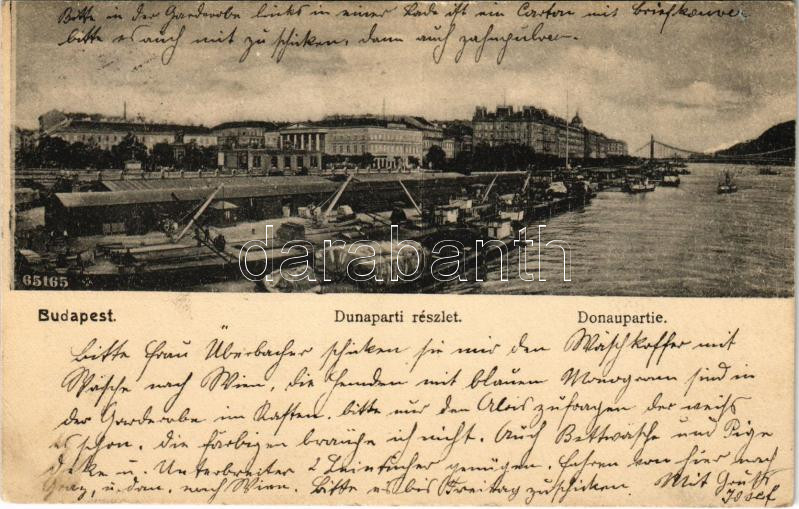 Bitte in der Garderobe links in einer Lade ist ein Carton mit Briefkouver
bitte es auch mit zu schicken, dann auch zahnpulver.
65165
darabanth
Budapest.
Dunaparti részlet.
Donaupartie.
Bitte Frau Überbacher schicken sie mir den Wäschkoffer mit
Wäsche nach Wien, die Hemden mit blauem Monogram sind in
der Garderobe im Kasten. bitte nur den Alois zufragen der weihs
es schon. die färbigen brauche ich nicht. Auch Bettwäsche und Pige
deke u. Unterbreiter 2 Leintücher genügen. Fahren von hier nach
Graz, u. dan. nach Wien. Bitte es bis Freitag zuschicken. Mit Gruß
Josef